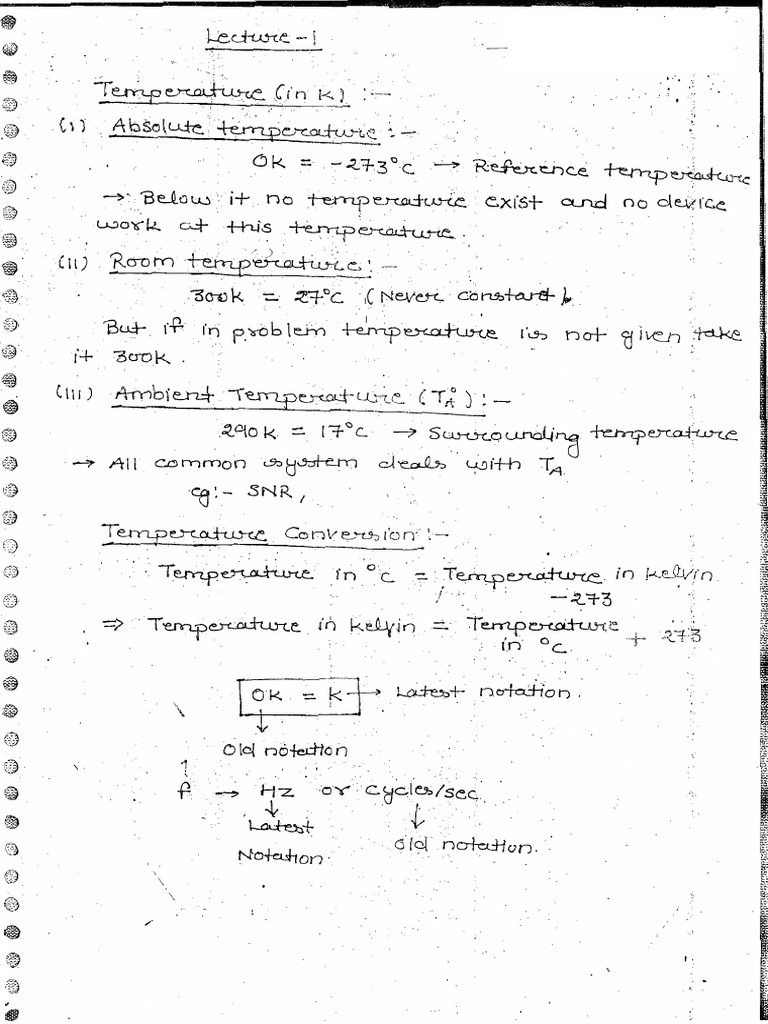 Lecture-1
Temperature (in K) :-
(i) Absolute temperature :-
0K = -273°C → Reference temperature
→ Below it no temperature exist and no device
work at this temperature.
(ii) Room temperature :-
300K = 27°C (Never constant).
But if in problem temperature is not given take
it 300K.
(iii) Ambient Temperature (T°A) :-
290K = 17°C → Surrounding temperature
→ All common system deals with TA
eg:- SNR,
Temperature Conversion :-
Temperature in °C = Temperature in kelvin
-273
⇒ Temperature in kelvin = Temperature + 273
in °C
°K = K → Latest notation.
↓
Old notation
↑
f → HZ or cycles/sec
↓ ↓
Latest old notation.
Notation.